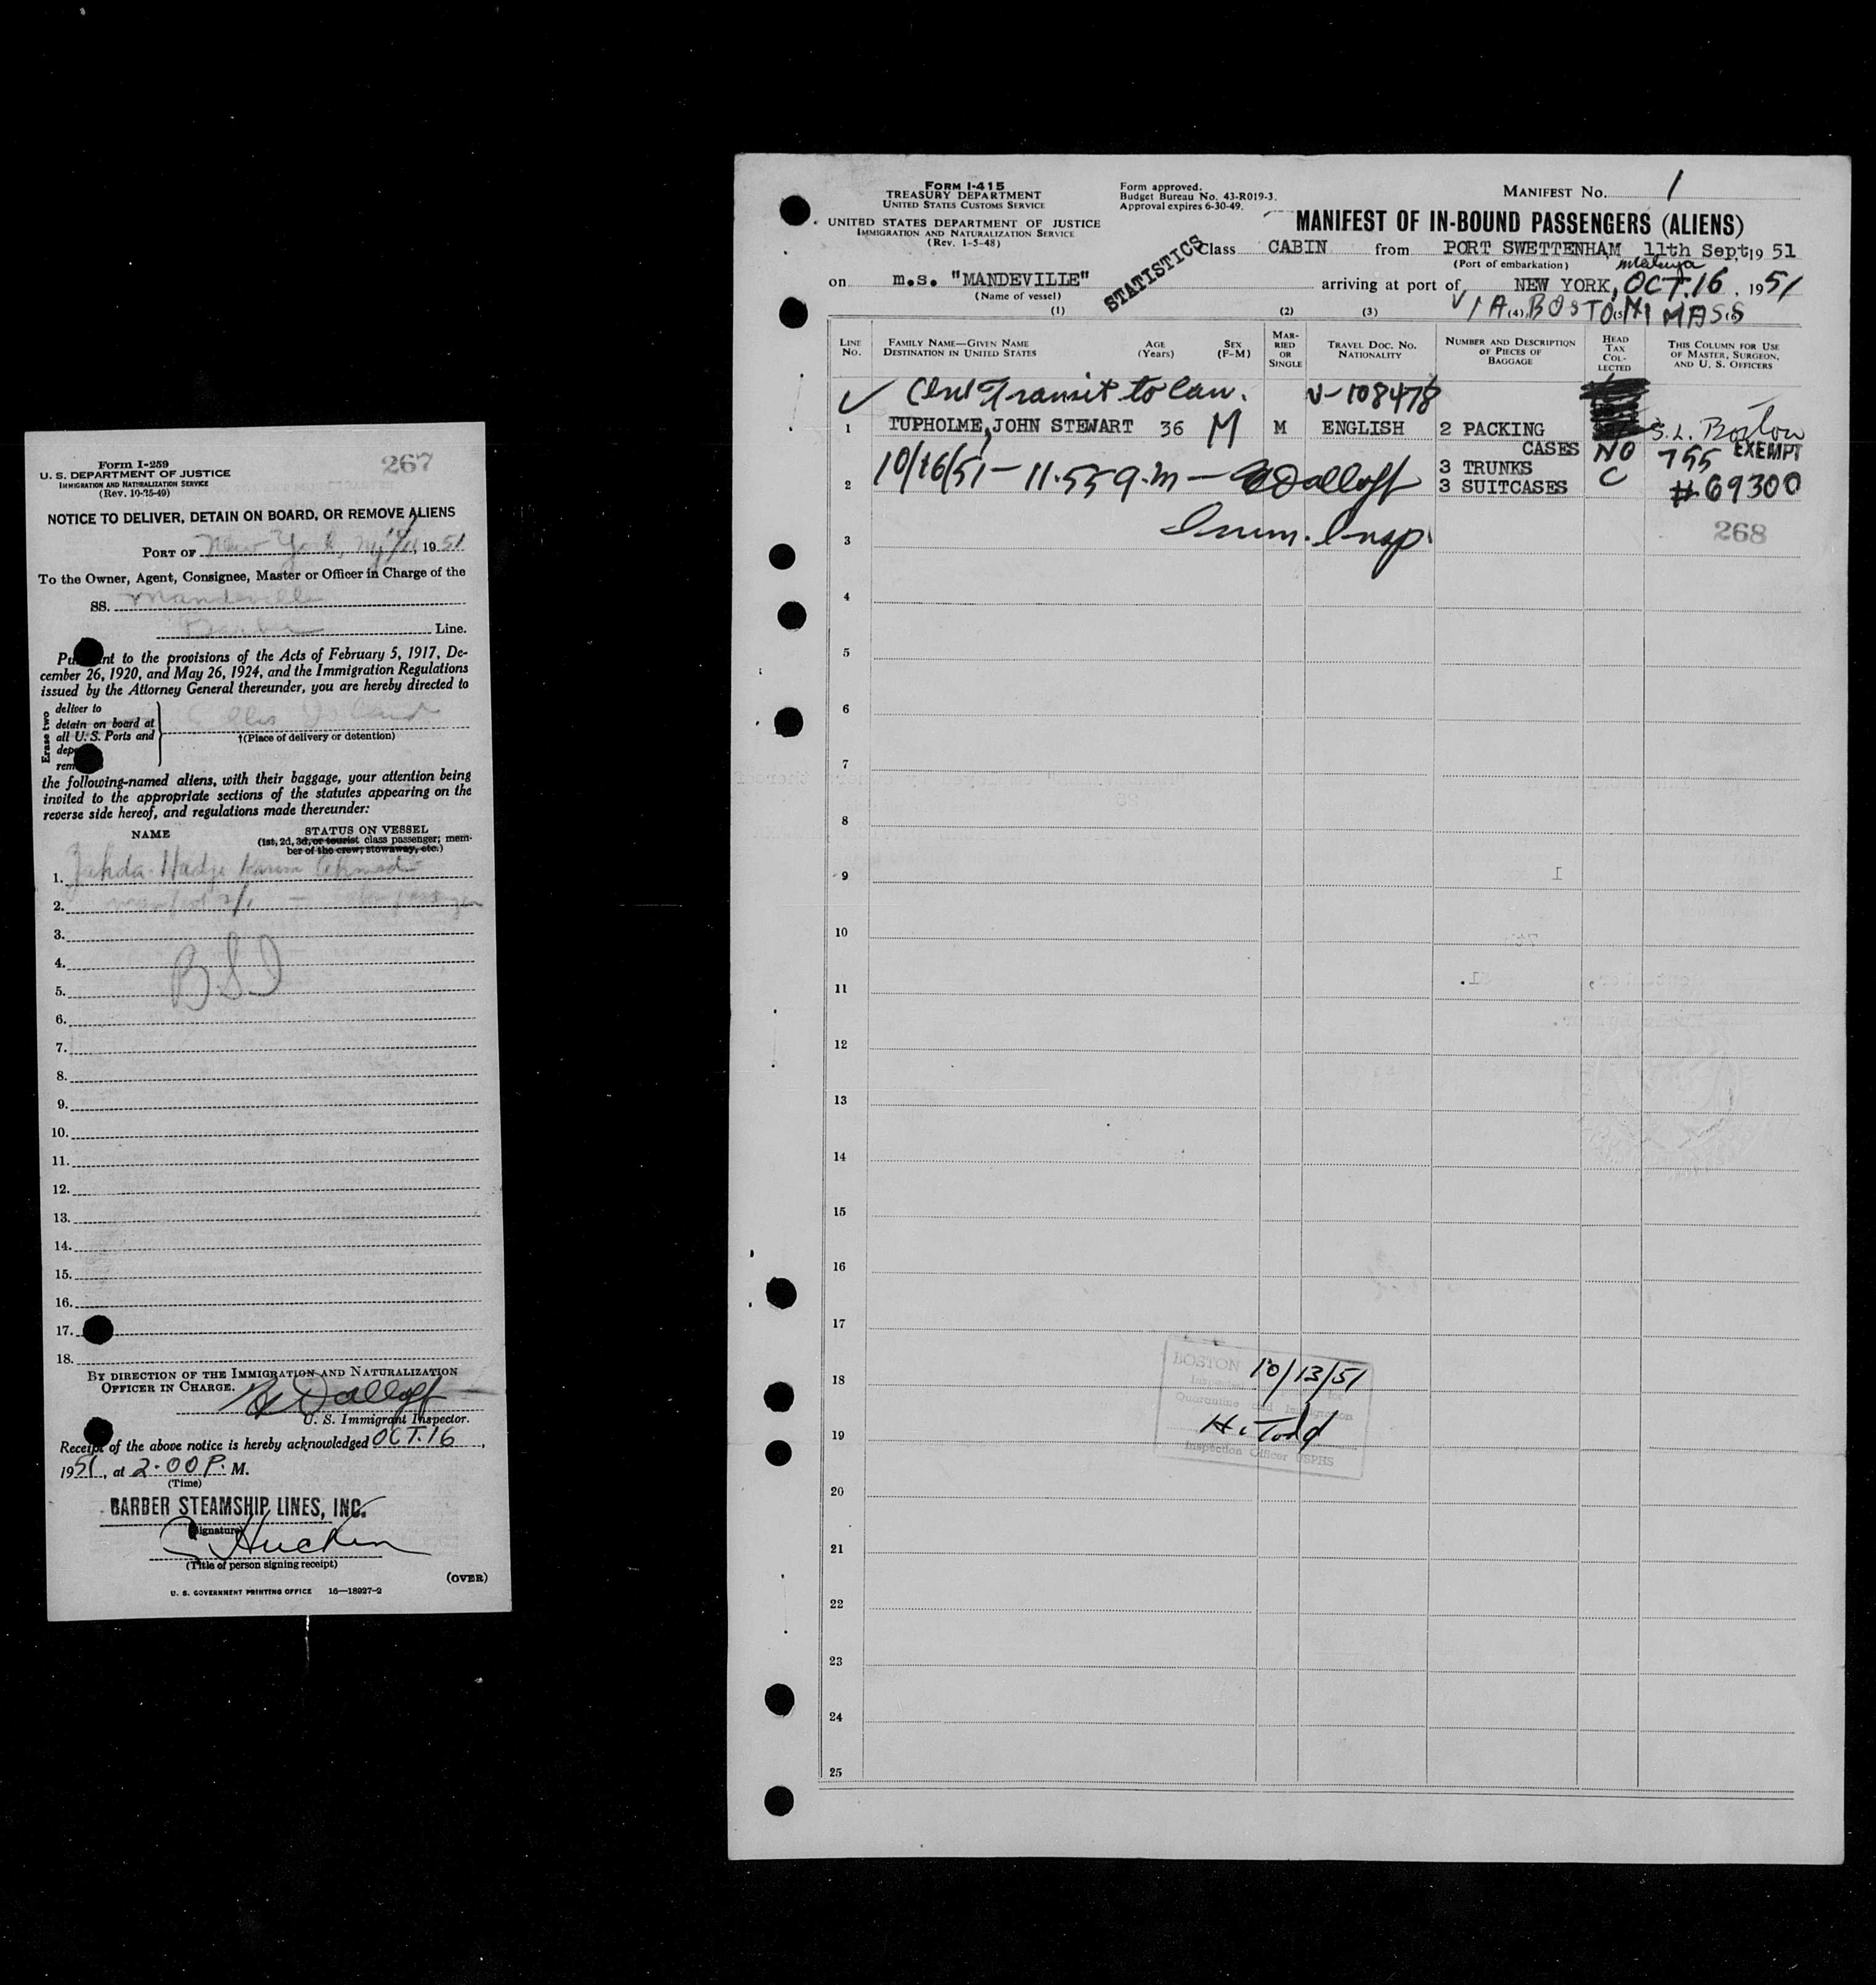 Form I-259
U. S. DEPARTMENT OF JUSTICE
IMMIGRATION AND NATURALIZATION SERVICE
(Rev. 10-25-49)
267
NOTICE TO DELIVER, DETAIN ON BOARD, OR REMOVE ALIENS
PORT OF New York, 1951
To the Owner, Agent, Consignee, Master or Officer in Charge of the
SS. Mandeville
Barber Line.
Pursuant to the provisions of the Acts of February 5, 1917, De-
cember 26, 1920, and May 26, 1924, and the Immigration Regulations
issued by the Attorney General thereunder, you are hereby directed to
Erase two
deliver to
detain on board at
all U. S. Ports and
Ellis Island
†(Place of delivery or detention)
the following-named aliens, with their baggage, your attention being
invited to the appropriate sections of the statutes appearing on the
reverse side hereof, and regulations made thereunder:
NAME
STATUS ON VESSEL
(1st, 2d, 3d, or tourist class passenger; mem-
ber of the crew; stowaway, etc.)
1. Hadje
2.
3.
4. BSI
5.
6.
7.
8.
9.
10.
11.
12.
13.
14.
15.
16.
17.
18.
BY DIRECTION OF THE IMMIGRATION AND NATURALIZATION
OFFICER IN CHARGE.
U. S. Immigrant Inspector.
Receipt of the above notice is hereby acknowledged OCT. 16,
1951, at 2.00 P. M.
(Time)
BARBER STEAMSHIP LINES, INC.
(Signature)
(Title of person signing receipt)
(OVER)
U. S. GOVERNMENT PRINTING OFFICE 16—18927-2
FORM I-415
TREASURY DEPARTMENT
UNITED STATES CUSTOMS SERVICE
UNITED STATES DEPARTMENT OF JUSTICE
IMMIGRATION AND NATURALIZATION SERVICE
(Rev. 1-5-48)
Form approved.
Budget Bureau No. 43-R019-3.
Approval expires 6-30-49.
MANIFEST No. 1
MANIFEST OF IN-BOUND PASSENGERS (ALIENS)
STATISTICS
Class CABIN from PORT SWETTENHAM, 11th Sept, 1951
(Port of embarkation) Malaya
on m.s. "MANDEVILLE" arriving at port of NEW YORK, OCT. 16, 1951
(Name of vessel)
VIA BOSTON MASS
(1) (2) (3) (4) (5) (6)
LINE No.
FAMILY NAME—GIVEN NAME
DESTINATION IN UNITED STATES
AGE (Years)
SEX (F-M)
MAR-RIED OR SINGLE
TRAVEL DOC. NO. NATIONALITY
NUMBER AND DESCRIPTION OF PIECES OF BAGGAGE
HEAD TAX COL-LECTED
THIS COLUMN FOR USE OF MASTER, SURGEON, AND U. S. OFFICERS
Transit to Can. V-108478
1 TUPHOLME, JOHN STEWART 36 M M ENGLISH 2 PACKING S.L. Boston
CASES NO 755 EXEMPT
10/16/51 - 11.55 a.m - 3 TRUNKS
2 3 SUITCASES C #69300
3 Imm. Insp. 268
4
5
6
7
8
9
10
11
12
13
14
15
16
17
BOSTON 10/13/51
18
Quarantine and Immigration
19 H. Todd
Inspection Officer USPHS
20
21
22
23
24
25